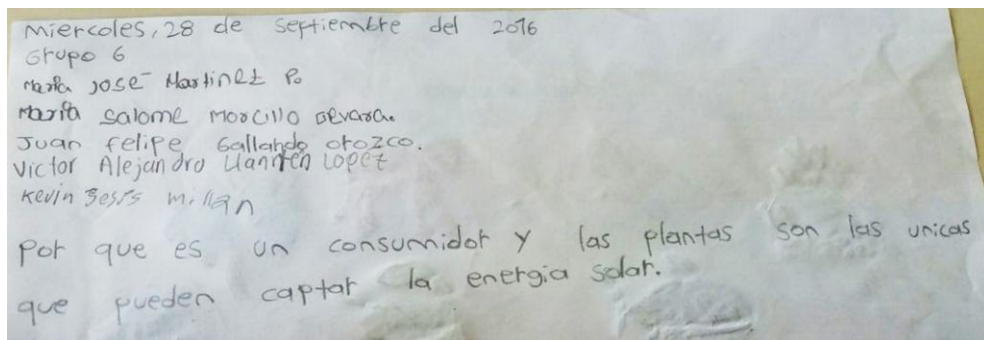 Miercoles, 28 de Septiembre del 2016
Grupo 6
María José Martinez P.
María Salome Morcillo Gevara.
Juan Felipe Gallardo Orozco.
Victor Alejandro Llanten Lopez
Kevin Millan
Por que es un consumidor y las plantas son las unicas
que pueden captar la energia solar.